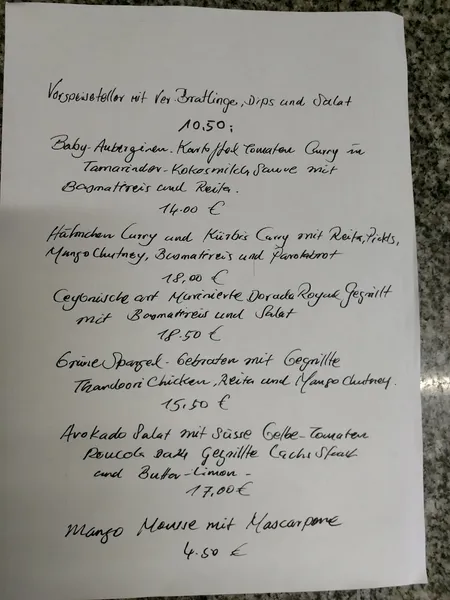 Vorspeiseteller mit Ver Bratlinge, Dips und Salat
10.50;
Baby-Auberginen-Kartoffel Tomaten Curry in
Tamarinden-Kokosmilch Sauce mit
Basmatireis und Reita.
14.00 €
Hähnchen Curry und Kürbis Curry mit Reita, Pickls,
Mango Chutney, Basmatireis und Parotabrot
18,00 €
Ceylonische art Marinierte Dorada Royal Gegrillt
mit Basmatireis und Salat
18.50 €
Grüne Spargel-Gebraten mit Gegrillte
Thandoori Chicken, Reita und Mango Chutney.
15,50 €
Avokado Salat mit Süsse Gelbe-Tomaten
Roucola Gegrillte Lachs Steak
und Butter-Limon-
17,00 €
Mango Mousse mit Mascarpone
4.50 €